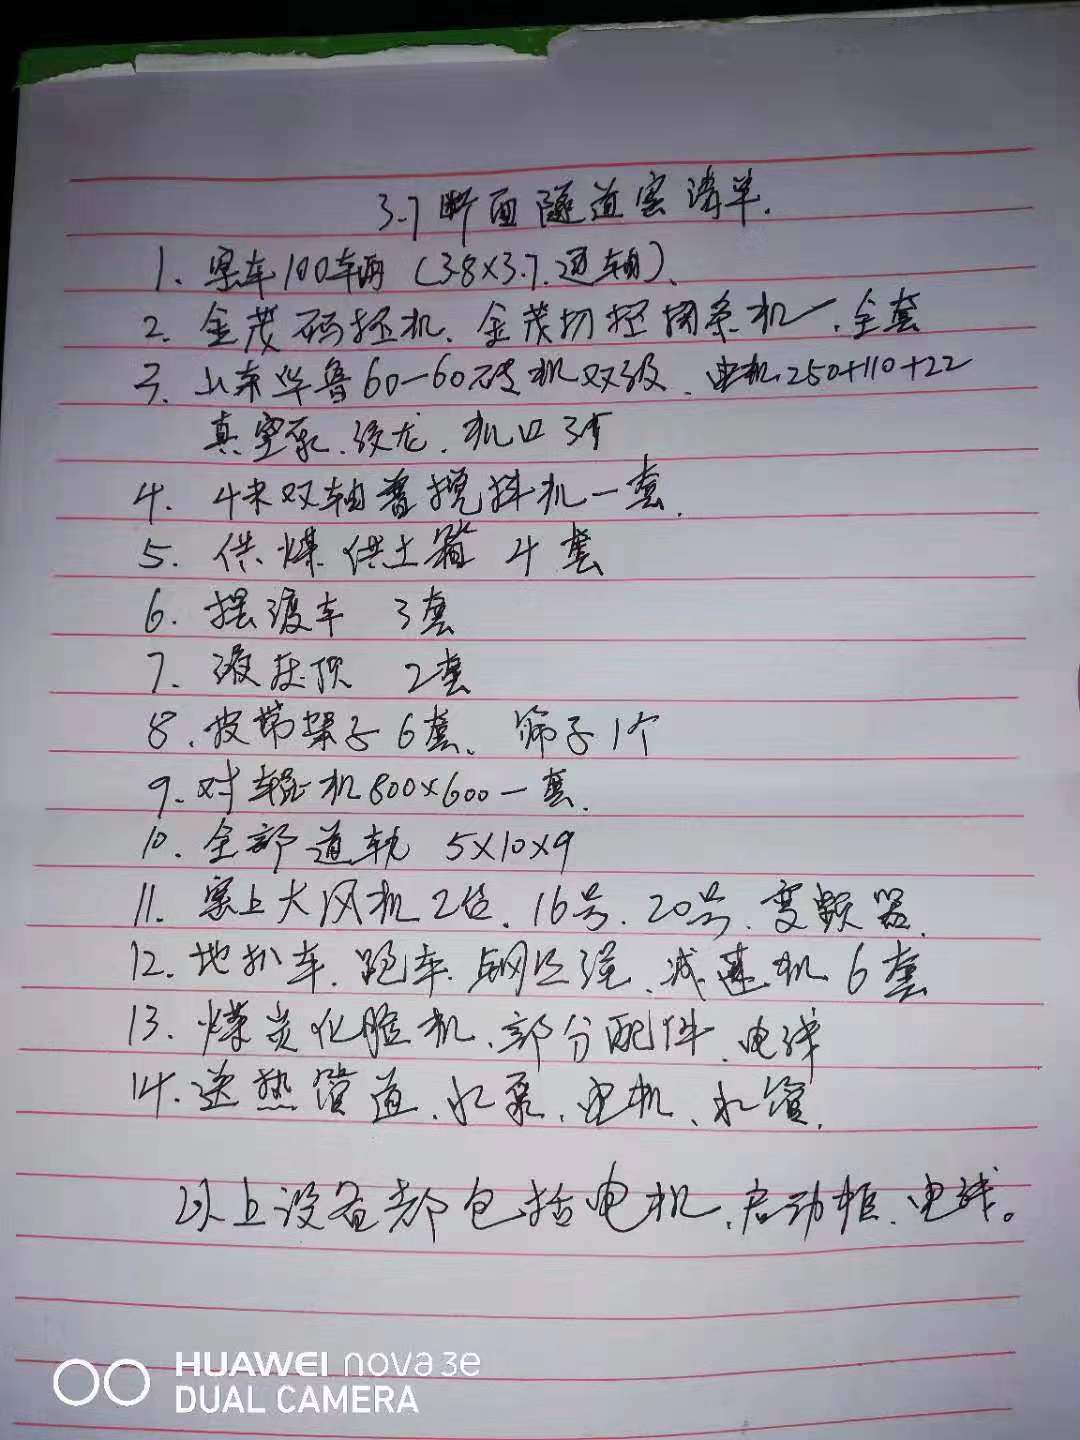 3.7断面隧道窑清单.
1. 窑车100车辆 (3.8×3.7.通轴).
2. 金茂码坯机、金茂切坯切条机一.全套
3. 山东华鲁60-60砖机双级. 电机.250+110+22
真空泵.绞龙. 机口3个
4. 4米双轴搅拌机一套.
5. 供煤供土箱 4套
6. 摆渡车 3套
7. 液压顶 2套
8. 皮带架子6套. 筛子1个
9. 对辊机800×600一套.
10. 全部道轨 5×10×9
11. 窑上大风机2台. 16号. 20号. 变频器.
12. 地扒车. 跑车. 钢丝绳. 减速机 6套
13. 煤炭化验机. 部分配件. 电线
14. 送热管道. 水泵. 电机. 水管.
以上设备都包括电机.启动柜. 电线。
HUAWEI nova 3e
DUAL CAMERA